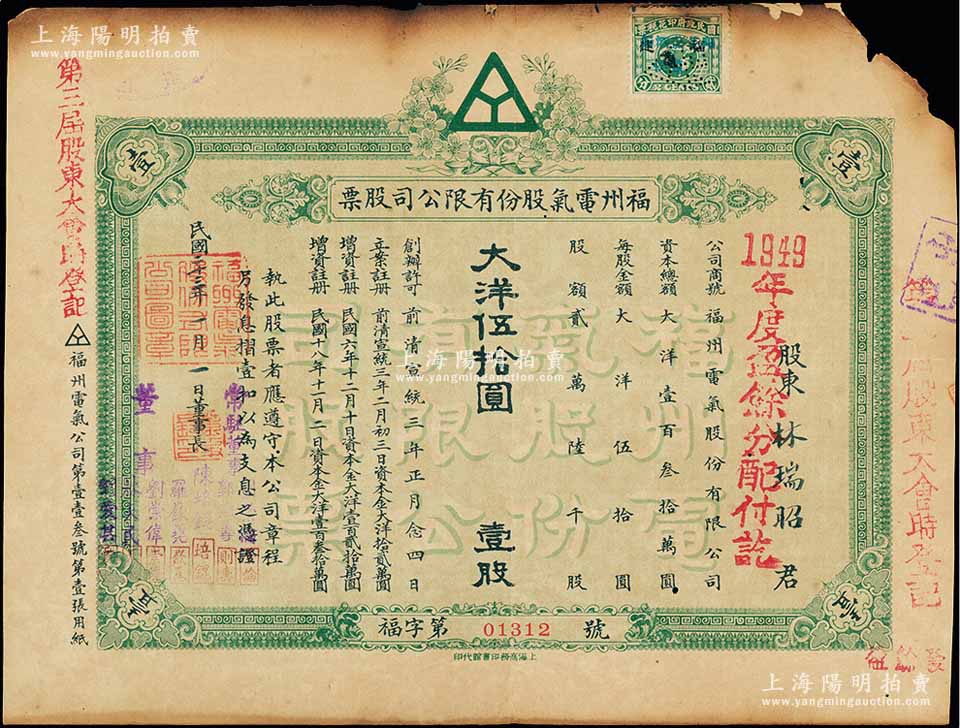 上海陽明拍賣
www.yangmingauction.com
CENTS
福州電氣股份有限公司股票
壹
壹
股東 林瑞昭 君
1949年度盈餘分配付訖
公司商號福州電氣股份有限公司
資本總額大洋壹百叁拾萬圓
每股金額大洋伍拾圓
股額貳萬陸千股
大洋伍拾圓 壹股
創辦許可 前清宣統三年正月念四日
立案註冊 前清宣統三年二月初三日資本金大洋拾貳萬圓
增資註冊 民國六年十二月十日資本金大洋壹百貳拾萬圓
增資註冊 民國十八年十一月二日資本金大洋壹百叁拾萬圓
執此股票者應遵守本公司章程
另發息摺壹扣以為支息之憑證
民國三十三年一月一日董事長
常駐董事
董事
壹
壹
福字第 01312 號
上海商務印書館代印
第三屆股東大會時登記
福州電氣公司第壹壹叁號第壹張用紙
股東大會時登記
上海陽明拍賣
www.yangmingauction.com
上海陽明拍賣
www.yangmingauction.com